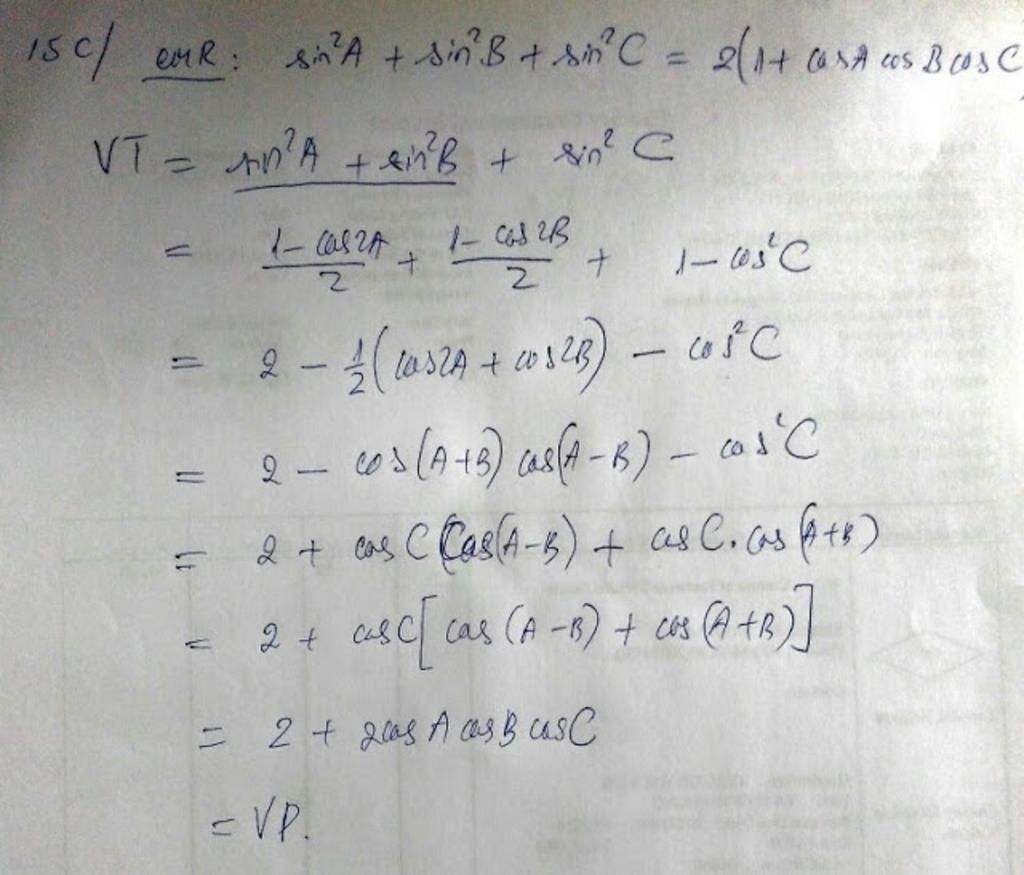 15 C/ CMR: sin²A + sin²B + sin²C = 2(1+ cosA cos B cos C
VT = sin²A + sin²B + sin² C
= \frac{1 - cos2A}{2} + \frac{1 - cos 2B}{2} + 1 - cos²C
= 2 - \frac{1}{2}(cos2A + cos2B) - cos²C
= 2 - cos(A+B) cos(A-B) - cos²C
= 2 + cos C Cos(A-B) + cos C. cos(A+B)
= 2 + cosC[cos (A-B) + cos(A+B)]
= 2 + 2cos A cosB cosC
= VP.